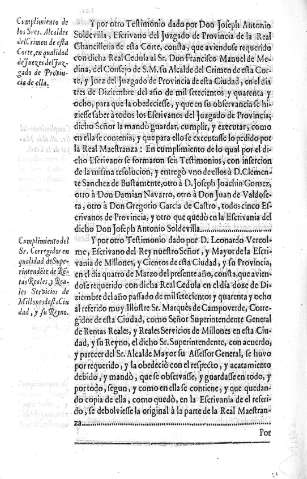 Cumplimiento de
los Sres. Alcaldes
del Crimen de esta
Corte, en qualidad
de Juezes del Juz-
gado de Provin-
cia de ella.
Y por otro Testimonio dado por Don Joseph Antonio
Soldevilla, Escrivano del Juzgado de Provincia de la Real
Chancilleria de esta Corte, consta, que aviendose requerido
con dicha Real Cedula al Sr. Don Francisco Manuel de Me-
dina, del Consejo de S.M. su Alcalde del Crimen de esta Cor-
te, y Juez del Juzgado de Provincia de esta Ciudad, en el dia
tres de Diciembre del año de mil setecientos y quarenta y
ocho, para que la obedeciesse, y que en su observancia se hi-
ziesse saber à todos los Escrivanos del Juzgado de Provincia;
dicho Señor la mandò guardar, cumplir, y executar, como
en ella se contenìa, y que para ello se excutasse lo pedido por
la Real Maestranza: En cumplimiento de lo qual por el di-
cho Escrivano se formaron seis Testimonios, con insercion
de la misma resolucion, y entregò uno de ellos à D. Clemen-
te Sanchez de Bustamente, otro à D. Joseph Joachin Gomez,
otro à Don Damian Navarro, otro à Don Juan de Valdose-
ra, otro à Don Gregorio Garcia de Castro, todos cinco Es-
crivanos de Provincia, y otro que quedò en la Escrivania del
dicho Don Joseph Antonio Soldevilla.
Cumplimiento del
Sr. Corregidor en
qualidad de Supe-
rintendēte de Rē-
tas Reales, y Rea-
les Servicios de
Millones de esta Ciu-
dad, y su Reyno.
Y por otro Testimonio dado por D. Leonardo Vercol-
me, Escrivano del Rey nuestro Señor, y Mayor de la Escri-
vania de Millones, y Cientos de esta Ciudad, y su Provincia,
en el dia quatro de Marzo del presente año, consta, que avien-
dose requerido con dicha Real Cedula en el dia doze de Di-
ciembre del año passado de mil setecientos y quarenta y ocho
al referido muy Ilustre Sr. Marquès de Campoverde, Corre-
gidor de esta Ciudad, como Señor Superintendente General
de Rentas Reales, y Reales Servicios de Millones en esta Ciu-
dad, y su Reyno, el dicho Sr. Superintendente, con acuerdo,
y parecer del Sr. Alcalde Mayor su Assessor General, se huvo
por requerido, y la obedeciò con el respecto, y acatamiento
debido, y mandò, que se observasse, y guardasse en todo, y
por todo, segun, y como en ella se contiene, y que quedan-
do copia de ella, como quedò, en la Escrivania de el referi-
do, se debolviesse la original à la parte de la Real Maestran-
za
Por